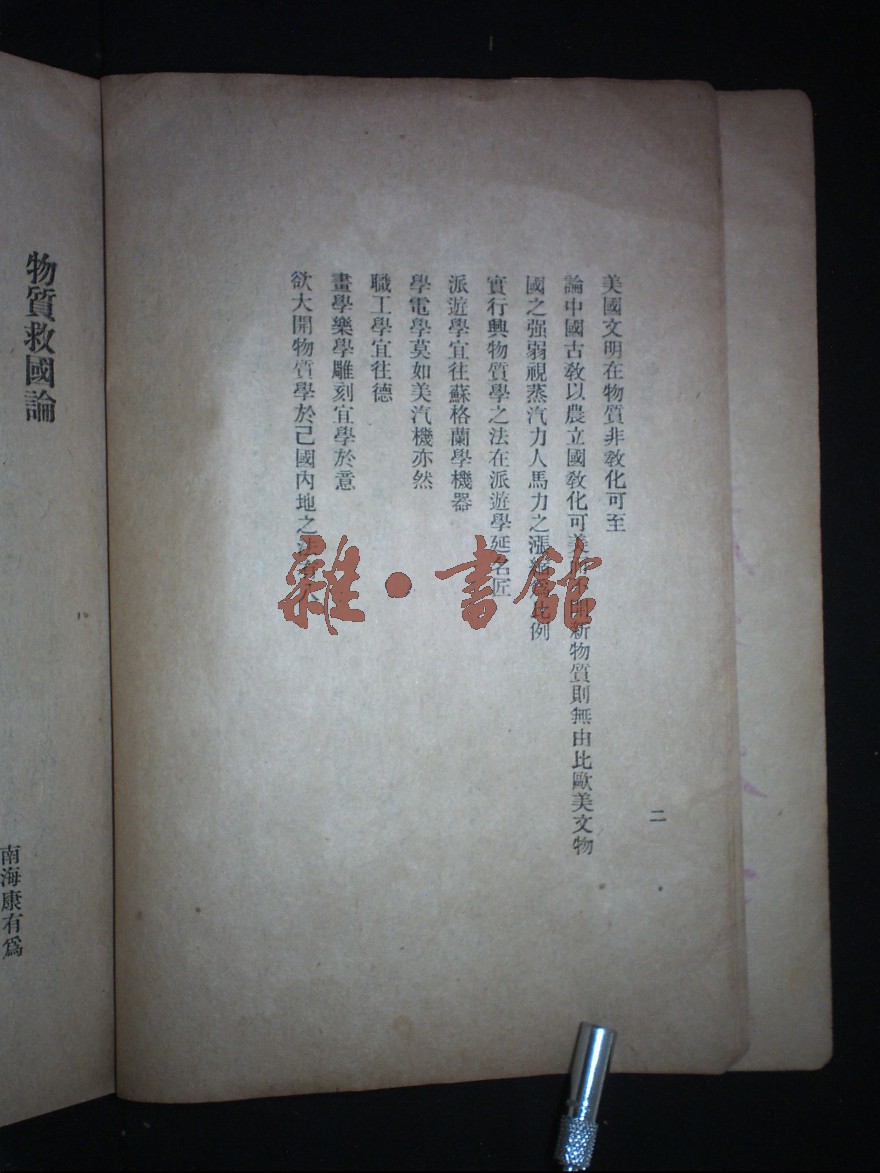 二
美國文明在物質非敎化可至
論中國古敎以農立國敎化可美而不開新物質則無由比歐美文物
國之强弱視蒸汽力人馬力之漲縮爲比例
實行興物質學之法在派遊學延名匠
派遊學宜往蘇格蘭學機器
學電學莫如美汽機亦然
職工學宜往德
畫學樂學雕刻宜學於意
欲大開物質學於己國內地之法有八
物質救國論
南海康有爲
雜·書館